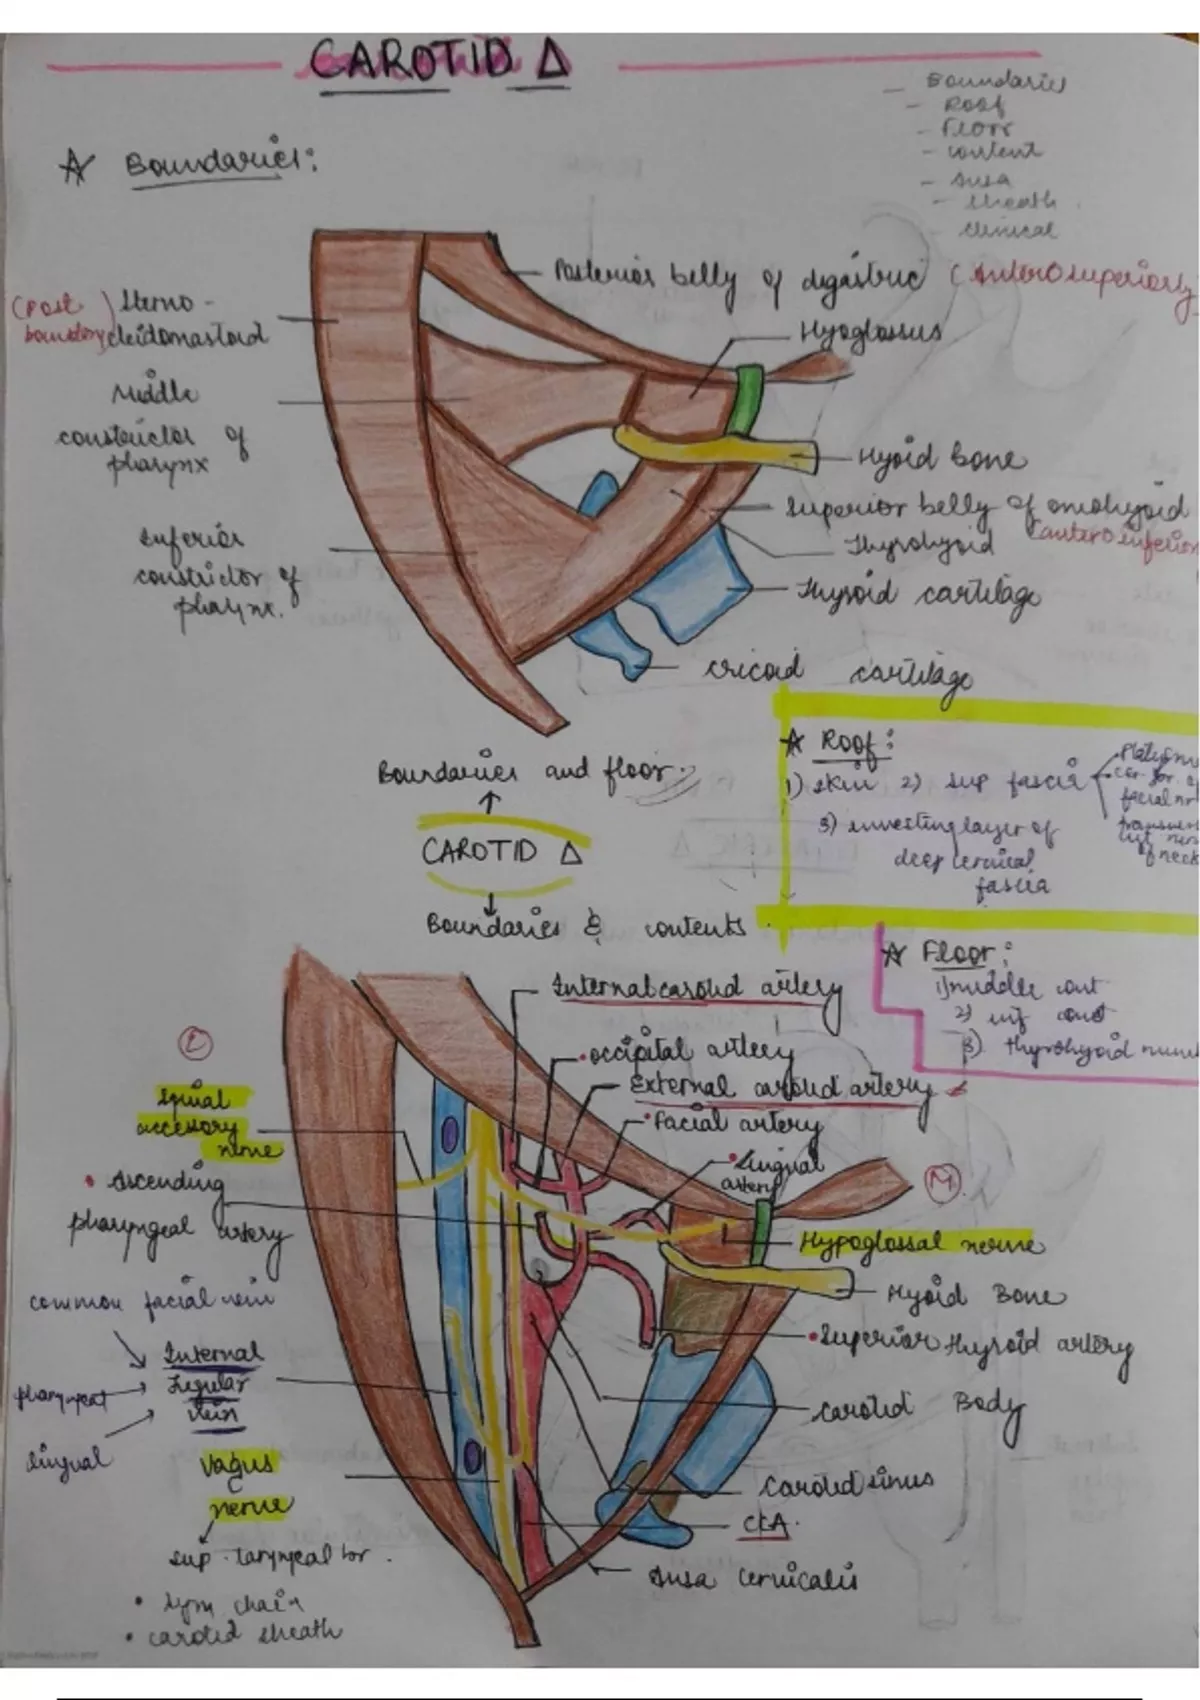 CAROTID Δ
Boundaries
Roof
Floor
content
Ansa
sheath
clinical
Boundaries:
Posterior belly of digastric (Anterosuperiorly
(Post boundary) Sterno-
cleidomastoid
Hyoglossus
Middle
constrictor of
pharynx
Hyoid bone
Superior belly of omohyoid
(antero inferior
Thyrohyoid
Inferior
constrictor of
pharynx.
Thyroid cartilage
cricoid cartilage
Boundaries and floor
CAROTID Δ
Boundaries & contents
Roof:
1) skin 2) sup fascia
3) investing layer of
deep cervical
fascia
facial nr
of neck
Floor:
1) middle const
2) inf const
3) thyrohyoid
Internal carotid artery
occipital artery
External carotid artery
Facial artery
Lingual
artery
L
Spinal
accessory
nerve
Ascending
pharyngeal artery
M
Hypoglossal nerve
Hyoid Bone
Superior thyroid artery
common facial vein
Internal
Jugular
Vein
pharyngeal
lingual
Carotid Body
Vagus
nerve
sup. laryngeal br.
Carotid sinus
CCA.
Ansa cervicalis
• lym chain
• carotid sheath